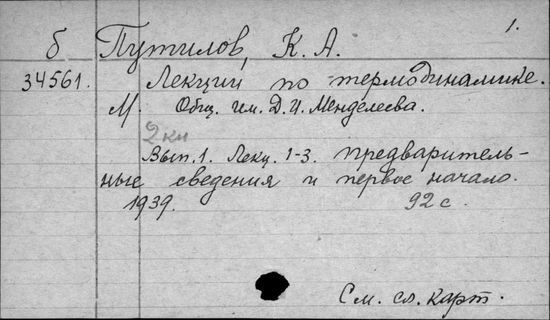 1.
б Путилов, К. А.
34561. Лекции по термодинамике.
М. Общ. им. Д. И. Менделеева.
2 кн
Вып. 1. Лекц. 1-3. предваритель-
ные сведения и первое начало.
1939. 92 с.
См. сл. карт.